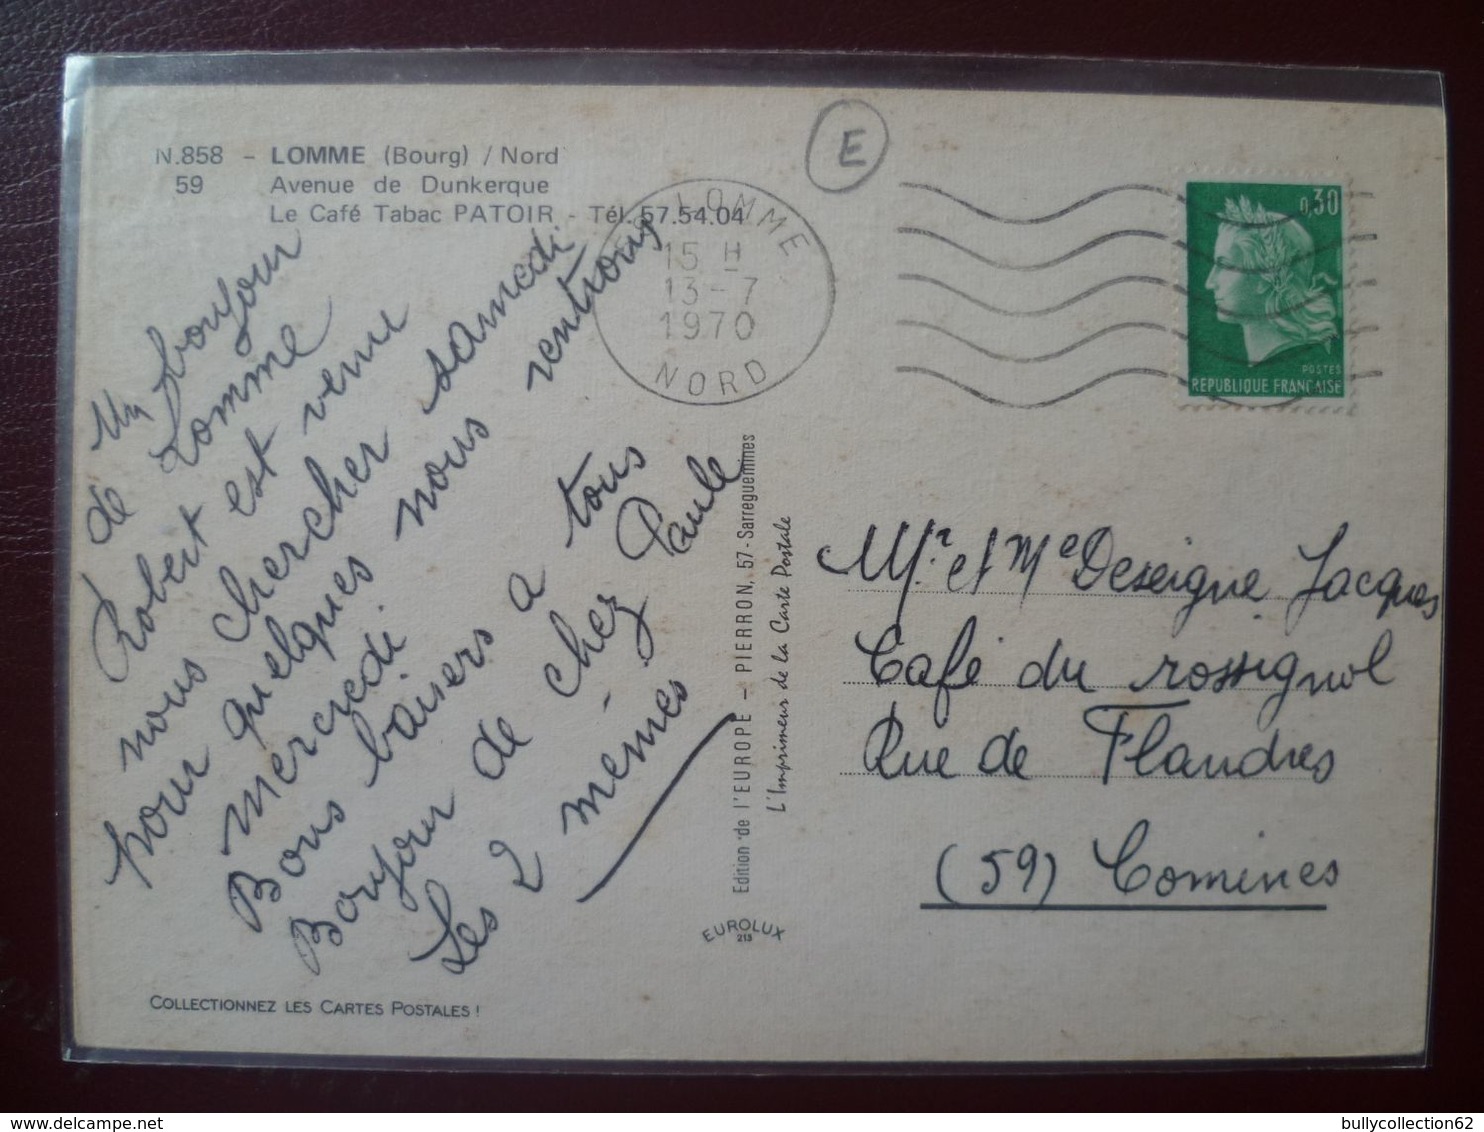 N.858 - LOMME (Bourg) / Nord
59 Avenue de Dunkerque
Le Café Tabac PATOIR - Tél. 57.54.04
E
59 LOMME
15 H
13-7
1970
NORD
0,30
POSTES
REPUBLIQUE FRANCAISE
Un bonjour
de Lomme
Robert est venu
nous chercher samedi
pour quelques nous rentrons
mercredi
Bons baisers a tous
Bonjour de chez Paule
Les 2 mêmes
Edition de l'EUROPE - PIERRON, 57 - Sarreguemines
L'Imprimeur de la Carte Postale
EUROLUX
213
Mr. et Me Deseigne Jacques
Café du rossignol
Rue de Flandres
(59) Comines
COLLECTIONNEZ LES CARTES POSTALES !
delcampe.net
bullycollection62